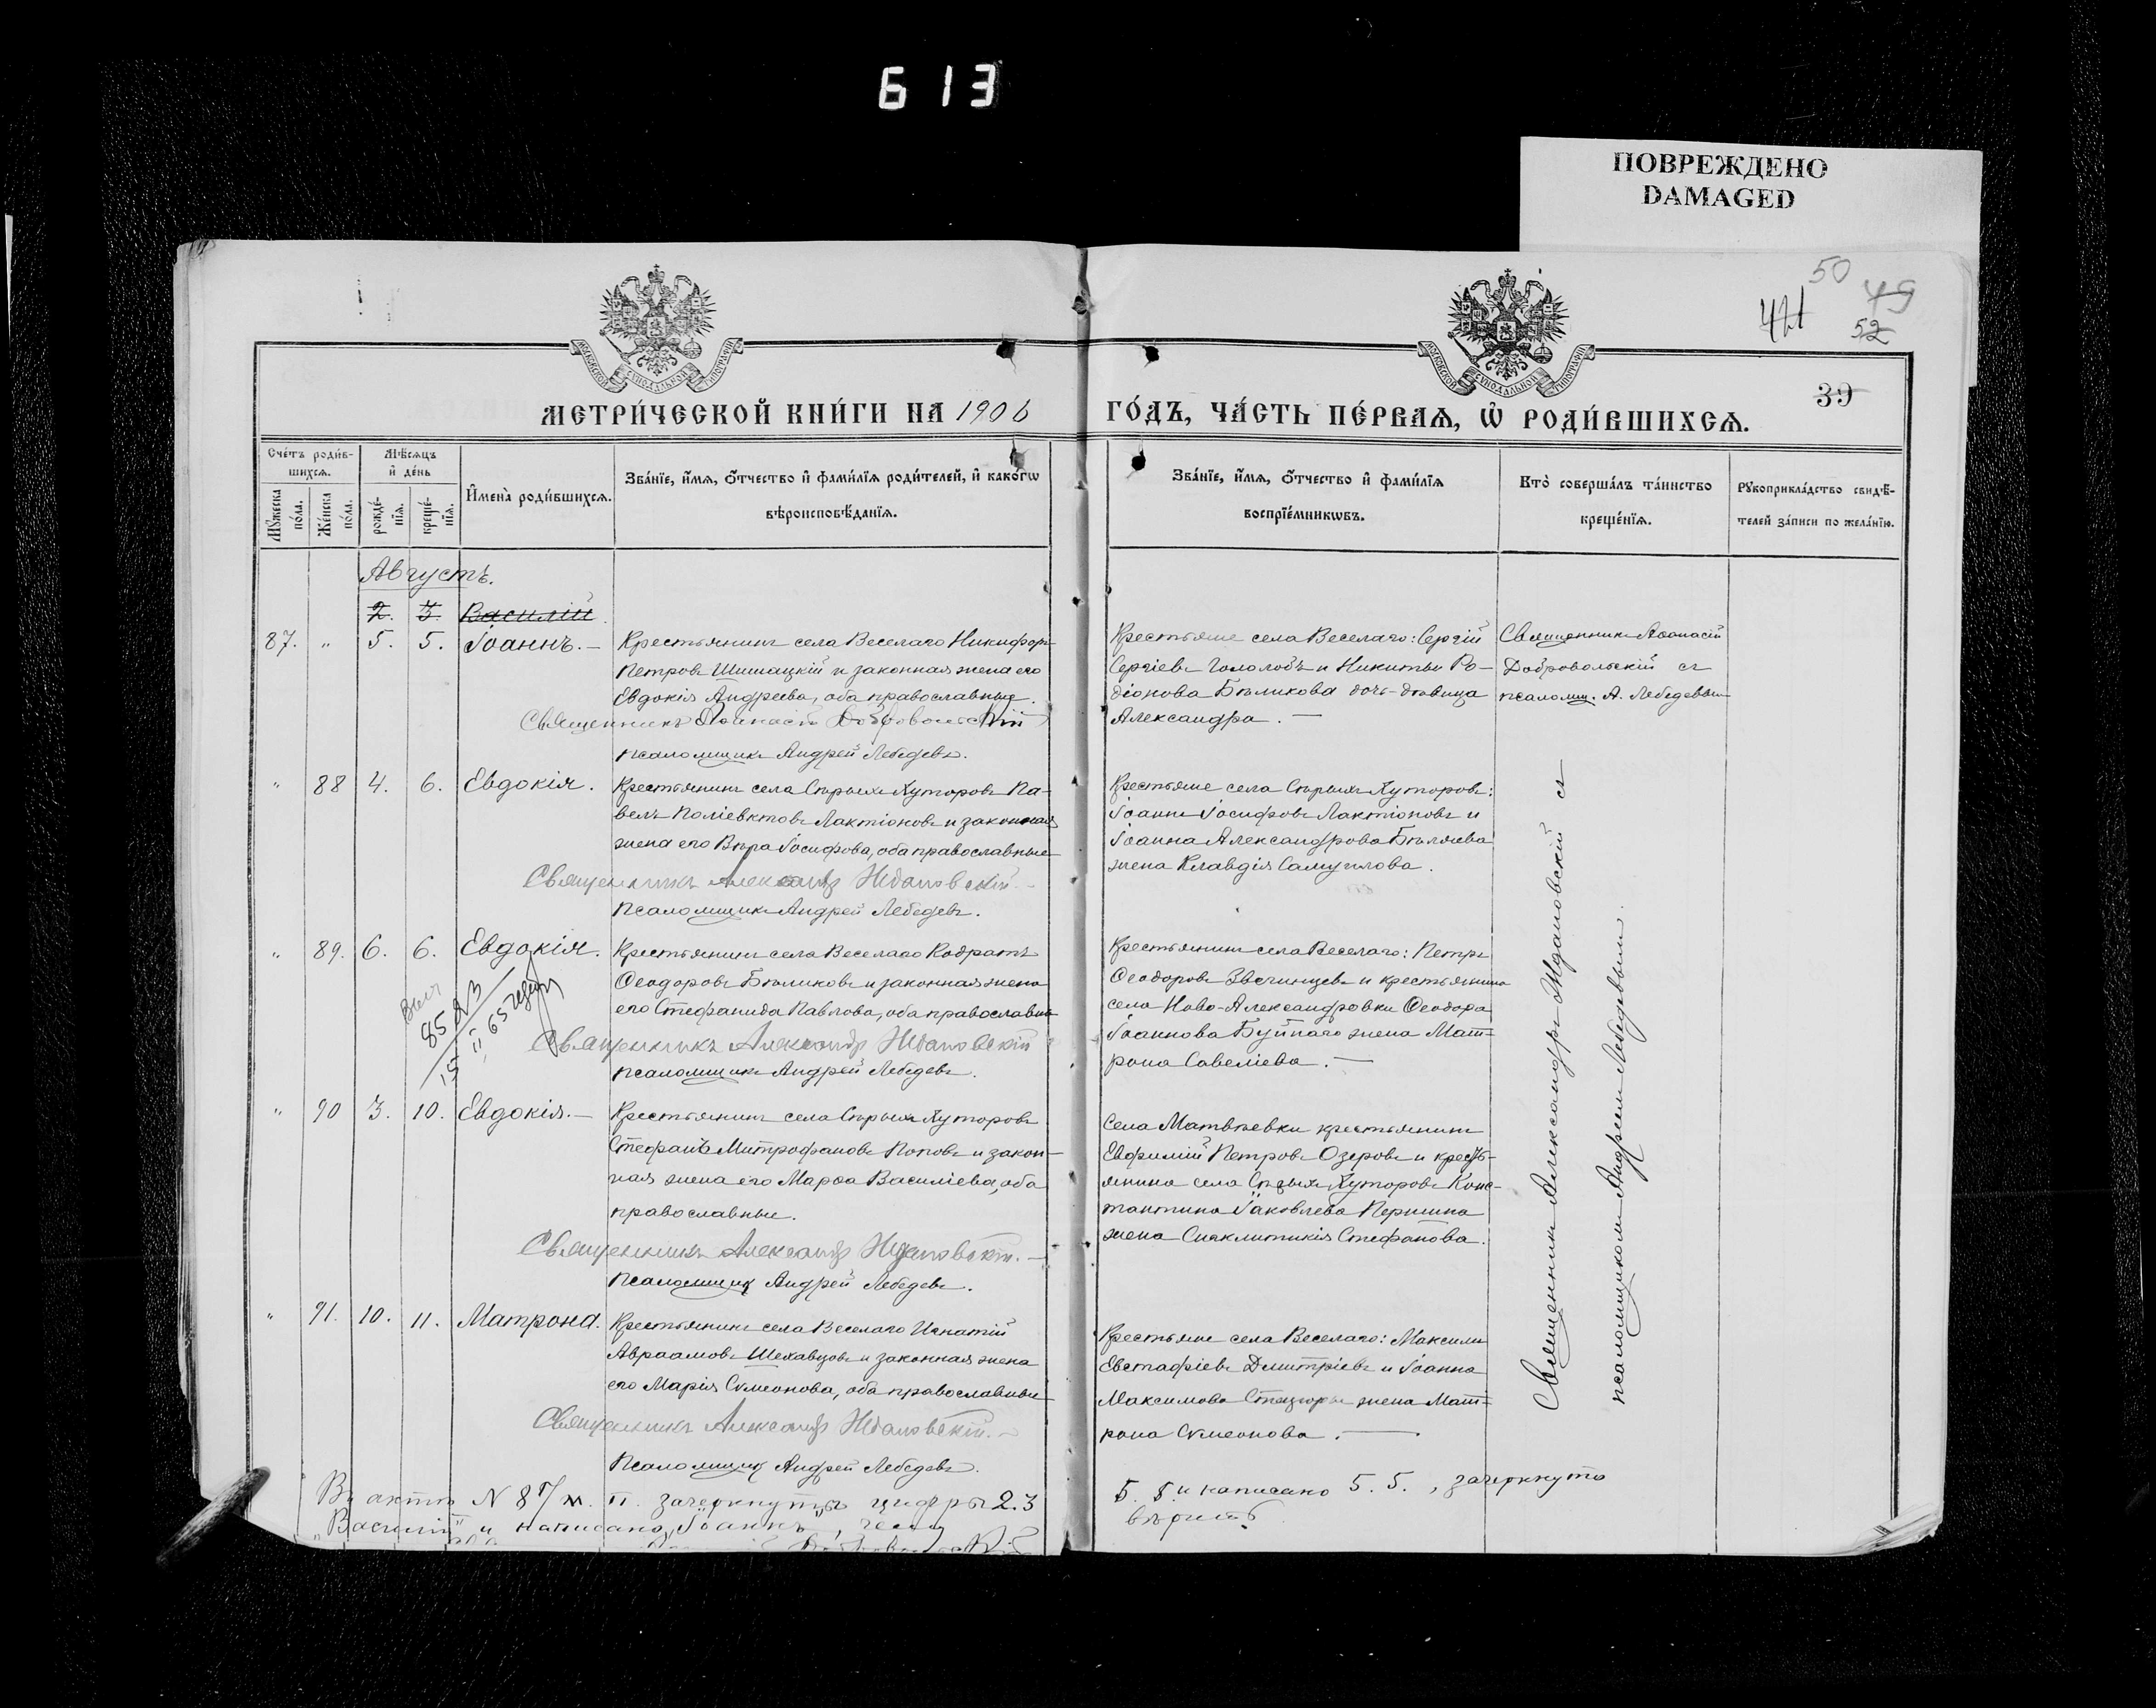 613
ПОВРЕЖДЕНО
DAMAGED
50
49
52
39
МОСКОВСКОЙ СѴНОДАЛЬНОЙ ТИПОГРАФІИ
МОСКОВСКОЙ СѴНОДАЛЬНОЙ ТИПОГРАФІИ
МЕТРИ́ЧЕСКОЙ КНИ́ГИ НА 1906
ГО́ДЪ, ЧА́СТЬ ПЕ́РВАѦ, Ѡ РОДИ́ВШИХСѦ.
Сче́тъ роди́в-
шихсѧ.
Мѹжеска по́ла.
Же́нска по́ла.
Мѣ́сѧцъ
и де́нь
рожде́-
нїѧ.
креще́-
нїѧ.
Имена̀ роди́вшихсѧ.
Зва́нїе, и́мѧ, ѻ́тчество и фами́лїѧ роди́телей, и како́гѡ
вѣроисповѣ́данїѧ.
Зва́нїе, и́мѧ, ѻ́тчество и фами́лїѧ
воспрїе́мникѡвъ.
Кто̀ соверша́лъ та́инство
креще́нїѧ.
Рѹкоприкла́дство свидѣ́-
телей за́писи по жела́нїю.
Августъ.
2. 3. Василій
87. " 5. 5. Іоаннъ. —
Крестьянинъ села Веселаго Никифоръ
Петровъ Шишацкій и законная жена его
Евдокія Андреева, оба православные.
Священникъ Аѳанасій Добровольскій
псаломщикъ Андрей Лебедевъ.
Крестьяне села Веселаго: Сергій
Сергіевъ Гололобъ и Никиты Ро-
діонова Бѣликова дочь-дѣвица
Александра. —
Священникъ Аѳанасій
Добровольскій съ
псаломщ. А. Лебедевымъ
" 88 4. 6. Евдокія.
Крестьянинъ села Сѣрыхъ Хуторовъ Па-
велъ Поліевктовъ Лактіоновъ и законная
жена его Вѣра Іосифова, оба православные
Священникъ Александръ Ждановскій. —
псаломщикъ Андрей Лебедевъ.
Крестьяне села Сѣрыхъ Хуторовъ:
Іоаннъ Іосифовъ Лактіоновъ и
Іоанна Александрова Бѣляева
жена Клавдія Самуилова.
" 89. 6. 6. Евдокія.
Крестьянинъ села Веселаго Кодратъ
Ѳеодоровъ Бѣликовъ и законная жена
его Стефанида Павлова, оба православные
Священникъ Александръ Ждановскій
псаломщикъ Андрей Лебедевъ.
Крестьянинъ села Веселаго: Петръ
Ѳеодоровъ Звегинцевъ и крестьянина
села Ново-Александровки Ѳеодора
Іоаннова Буйнаго жена Мат-
рона Савеліева. —
" 90 3. 10. Евдокія. —
Крестьянинъ села Сѣрыхъ Хуторовъ
Стефанъ Митрофановъ Поповъ и закон-
ная жена его Марѳа Василіева, оба
православные.
Священникъ Александръ Ждановскій. —
псаломщикъ Андрей Лебедевъ.
Села Матвѣевки крестьянинъ
Евфимій Петровъ Озеровъ и кресть-
янина села Сѣрыхъ Хуторовъ Конс-
тантина Іаковлева Першина
жена Синклитикія Стефанова.
" 91. 10. 11. Матрона.
Крестьянинъ села Веселаго Игнатій
Авраамовъ Шехавцовъ и законная жена
его Марія Сѵмеонова, оба православные
Священникъ Александръ Ждановскій. —
Псаломщикъ Андрей Лебедевъ.
Крестьяне села Веселаго: Максимъ
Евстафіевъ Димитріевъ и Іоанна
Максимова жена Мат-
рона Сѵмеонова. —
Священникъ Александръ Ждановскій съ
псаломщикомъ Андреемъ Лебедевымъ.
Въ актѣ N 87 м. п. зачеркнуты цифры 2.3
"Василій" и написано "Іоаннъ",
5. 5. и написано 5. 5., зачеркнуто
вѣрить